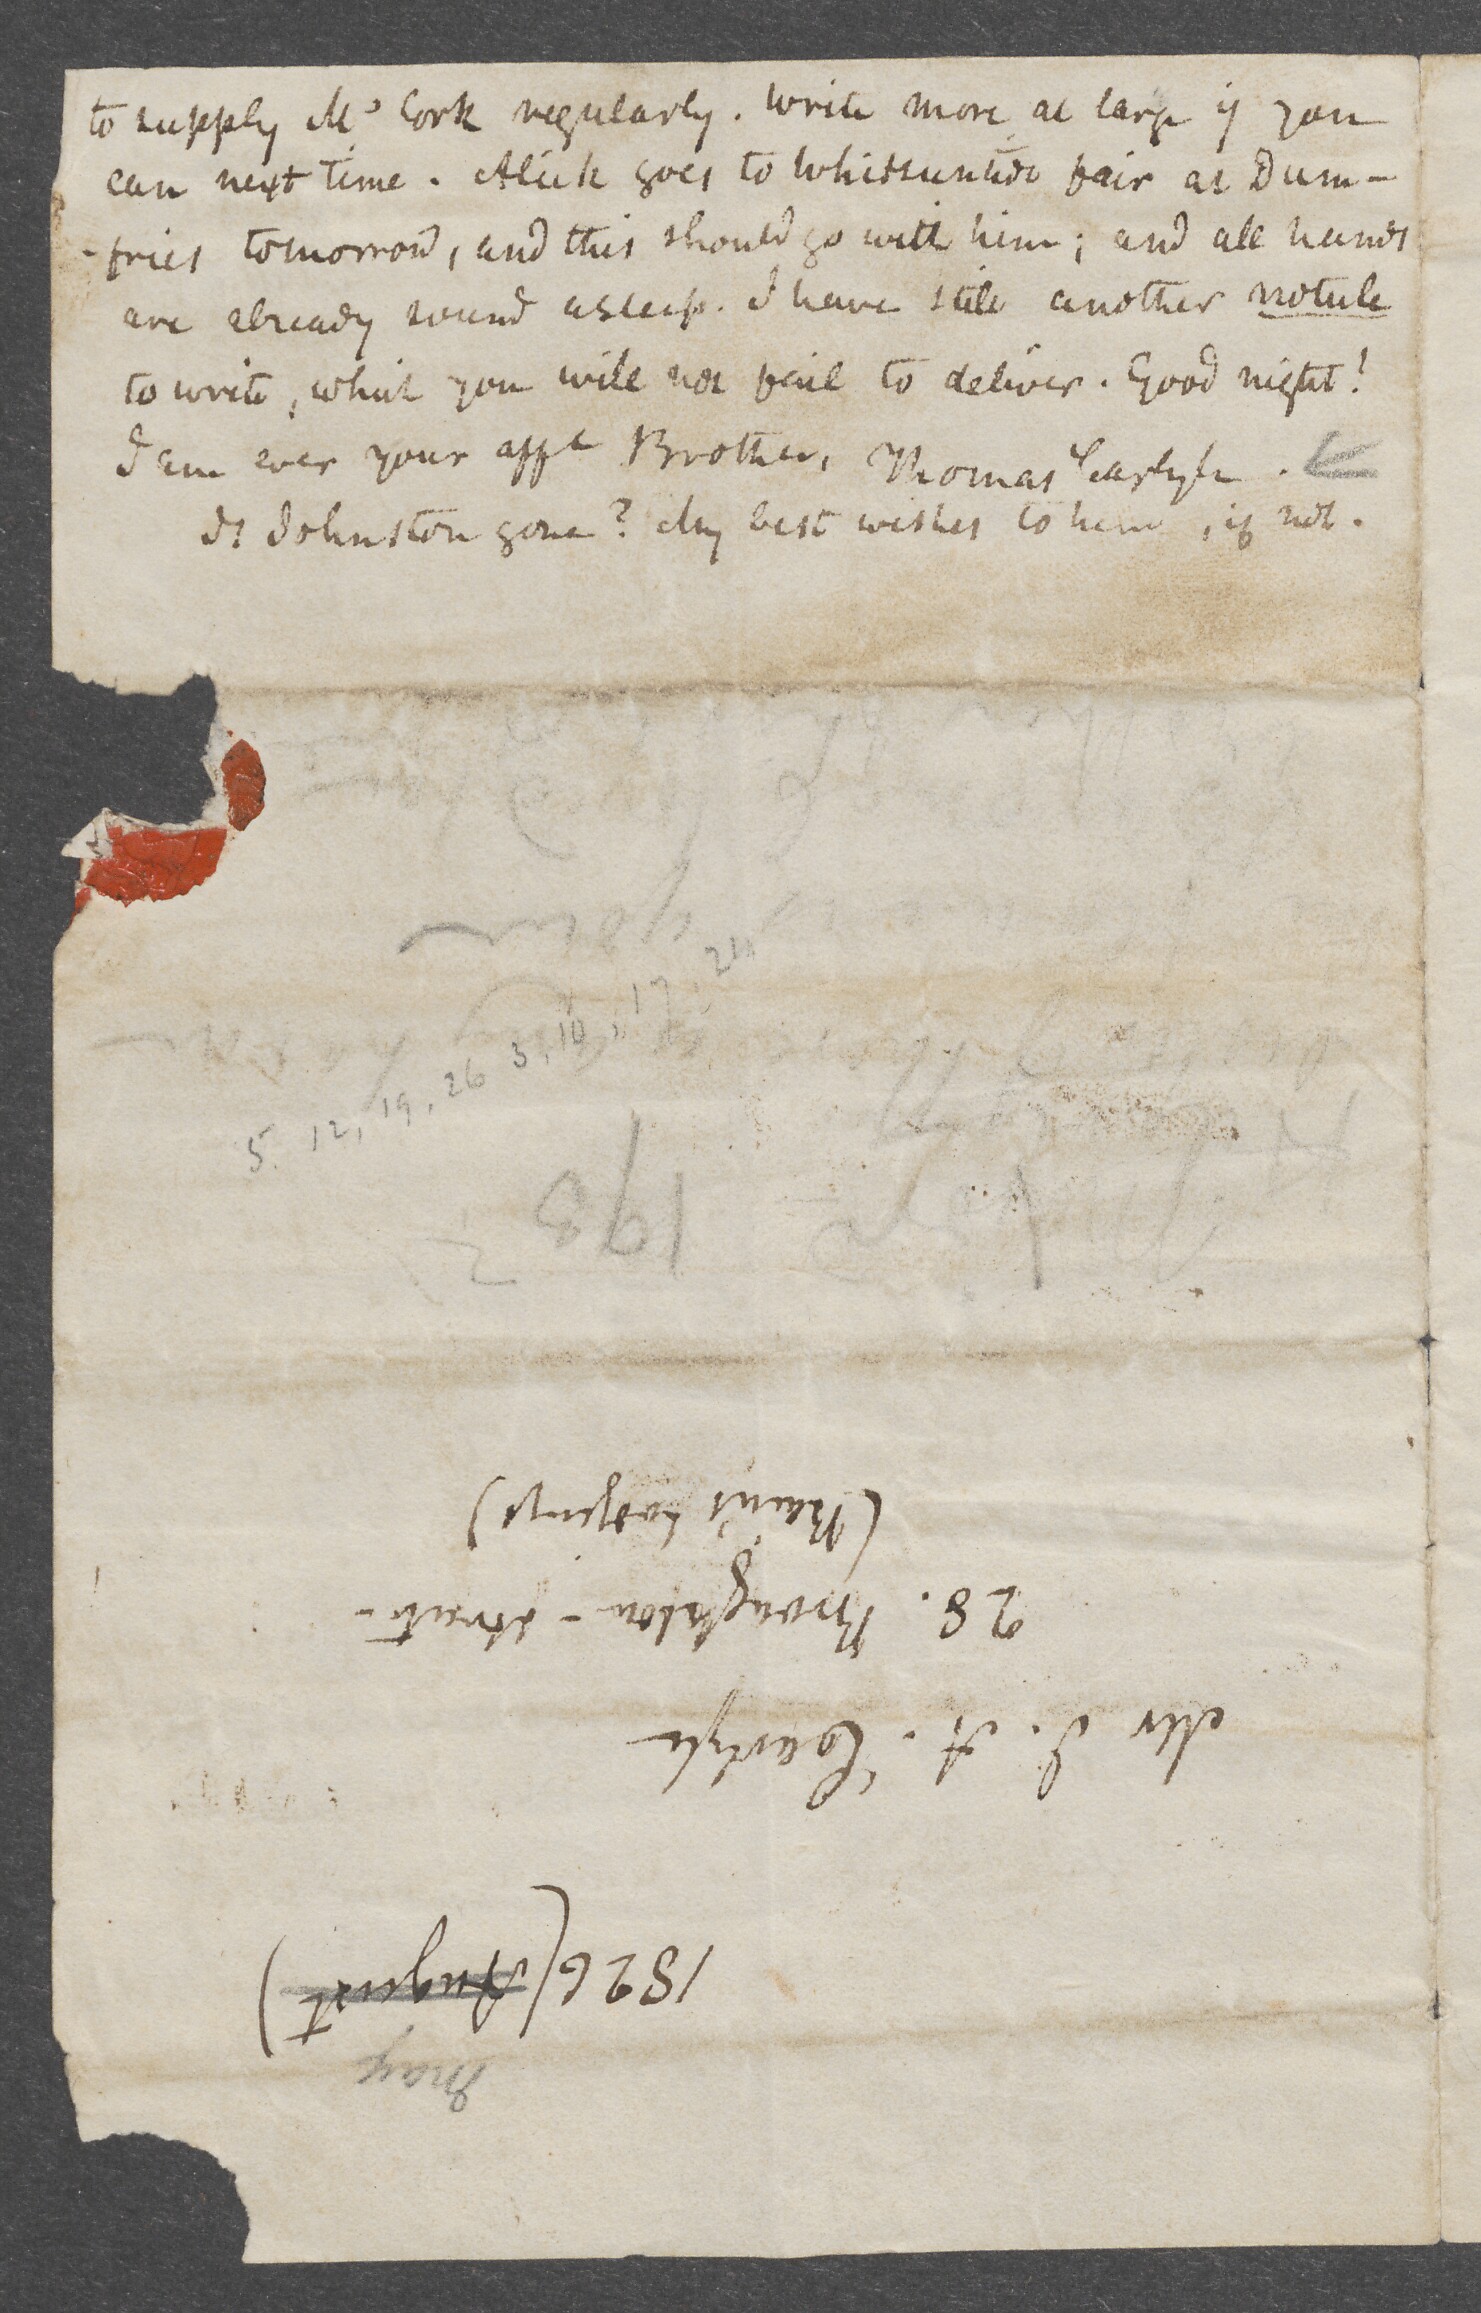 to supply Mc Cork regularly. Write more at large if you
can next time. Alick goes to Whitsuntide fair at Dum-
-fries tomorrow, and this should go with him; and all hands
are already sound asleep. I have still another notule
to write, which you will not fail to deliver. Good night!
I am ever your affe Brother, Thomas Carlyle.
Is Johnston gone? My best wishes to him, if not.
your
5. 12, 19, 26 3, 10, 17, 24
193
Mr J. A. Carlyle
28. Broughton-street-
(Bain's Lodgings)
May
1826 (August)